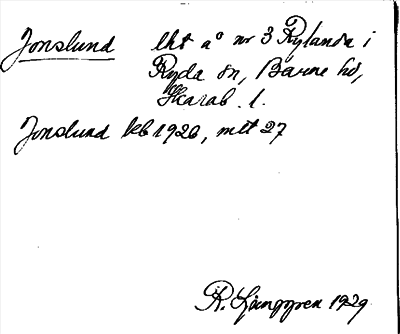 Jonslund lht å nr 3 Rylanda i
Ryda sn, Barne hd,
Skarab. l.
Jonslund kb 1926, mtl 27
R. Ljunggren 1929